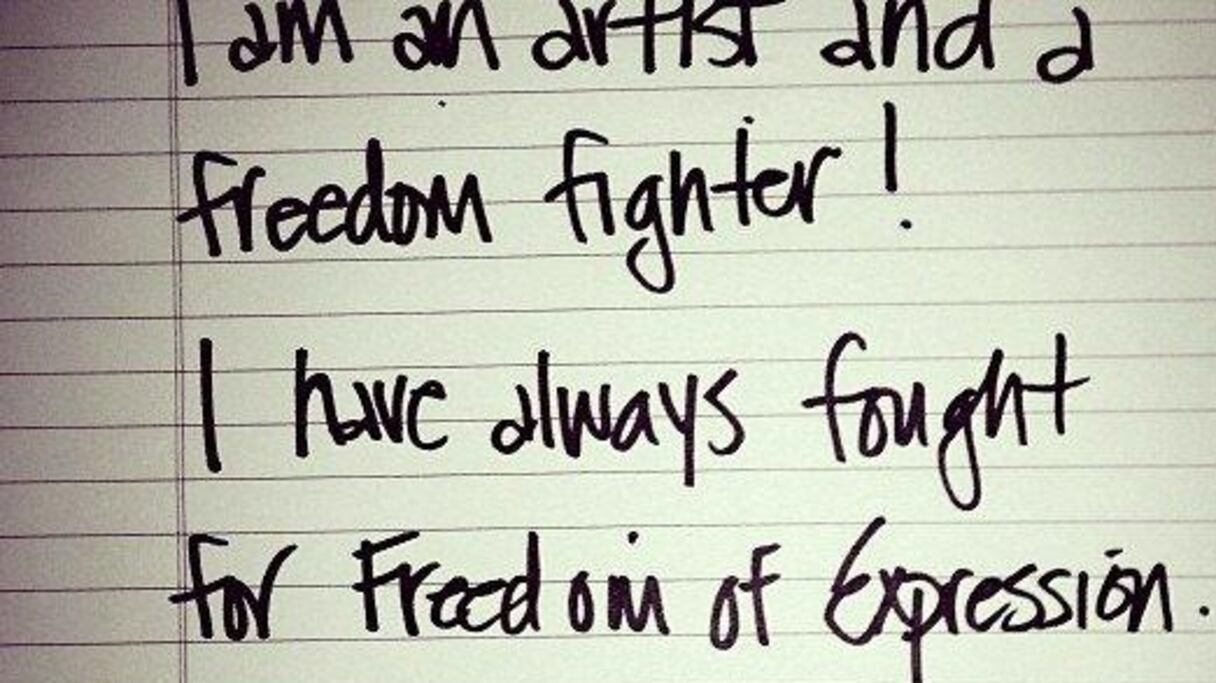 I am an artist and a
freedom fighter!
I have always fought
for Freedom of Expression.